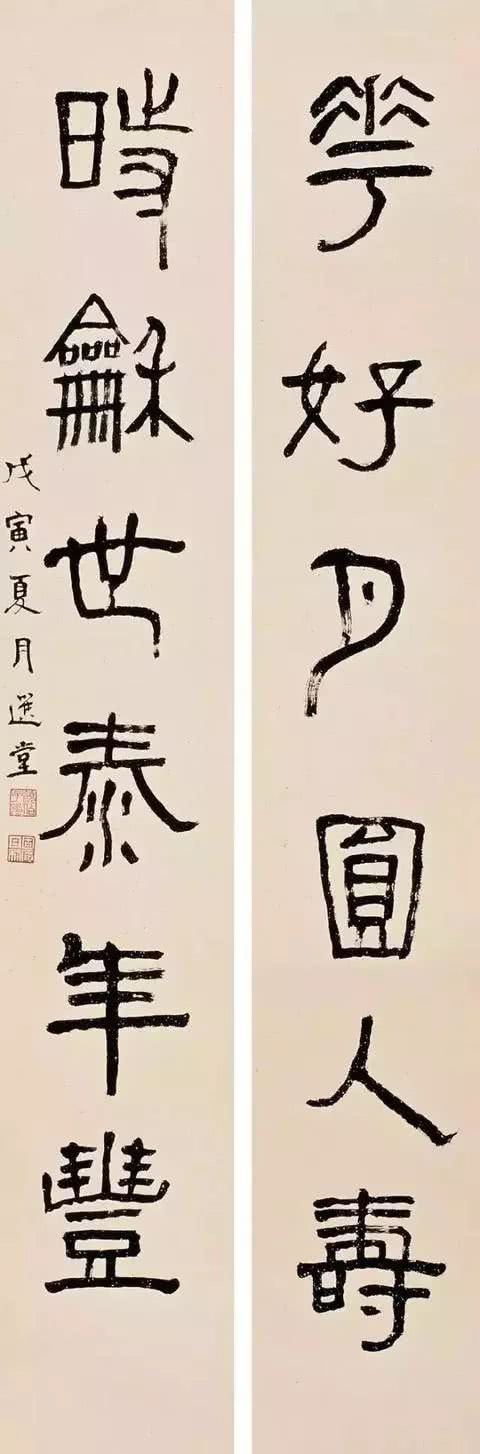 華好月圓人壽
時龢世泰年豐
戊寅夏月選堂